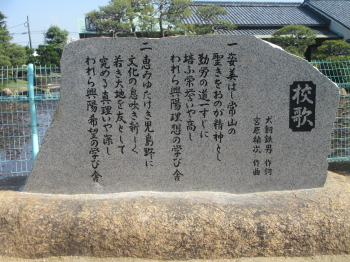 校歌
鉄男 作詞
宮原禎次 作曲
一 姿美はし常山の
聖きをおのが精神とし
勤労の道一すじに
培ふ栄誉いや高し
われら興陽理想の学び舎
二 恵みゆたけき児島野に
文化の息吹き新しく
若き大地を友として
究める真理いや深し
われら興陽希望の学び舎